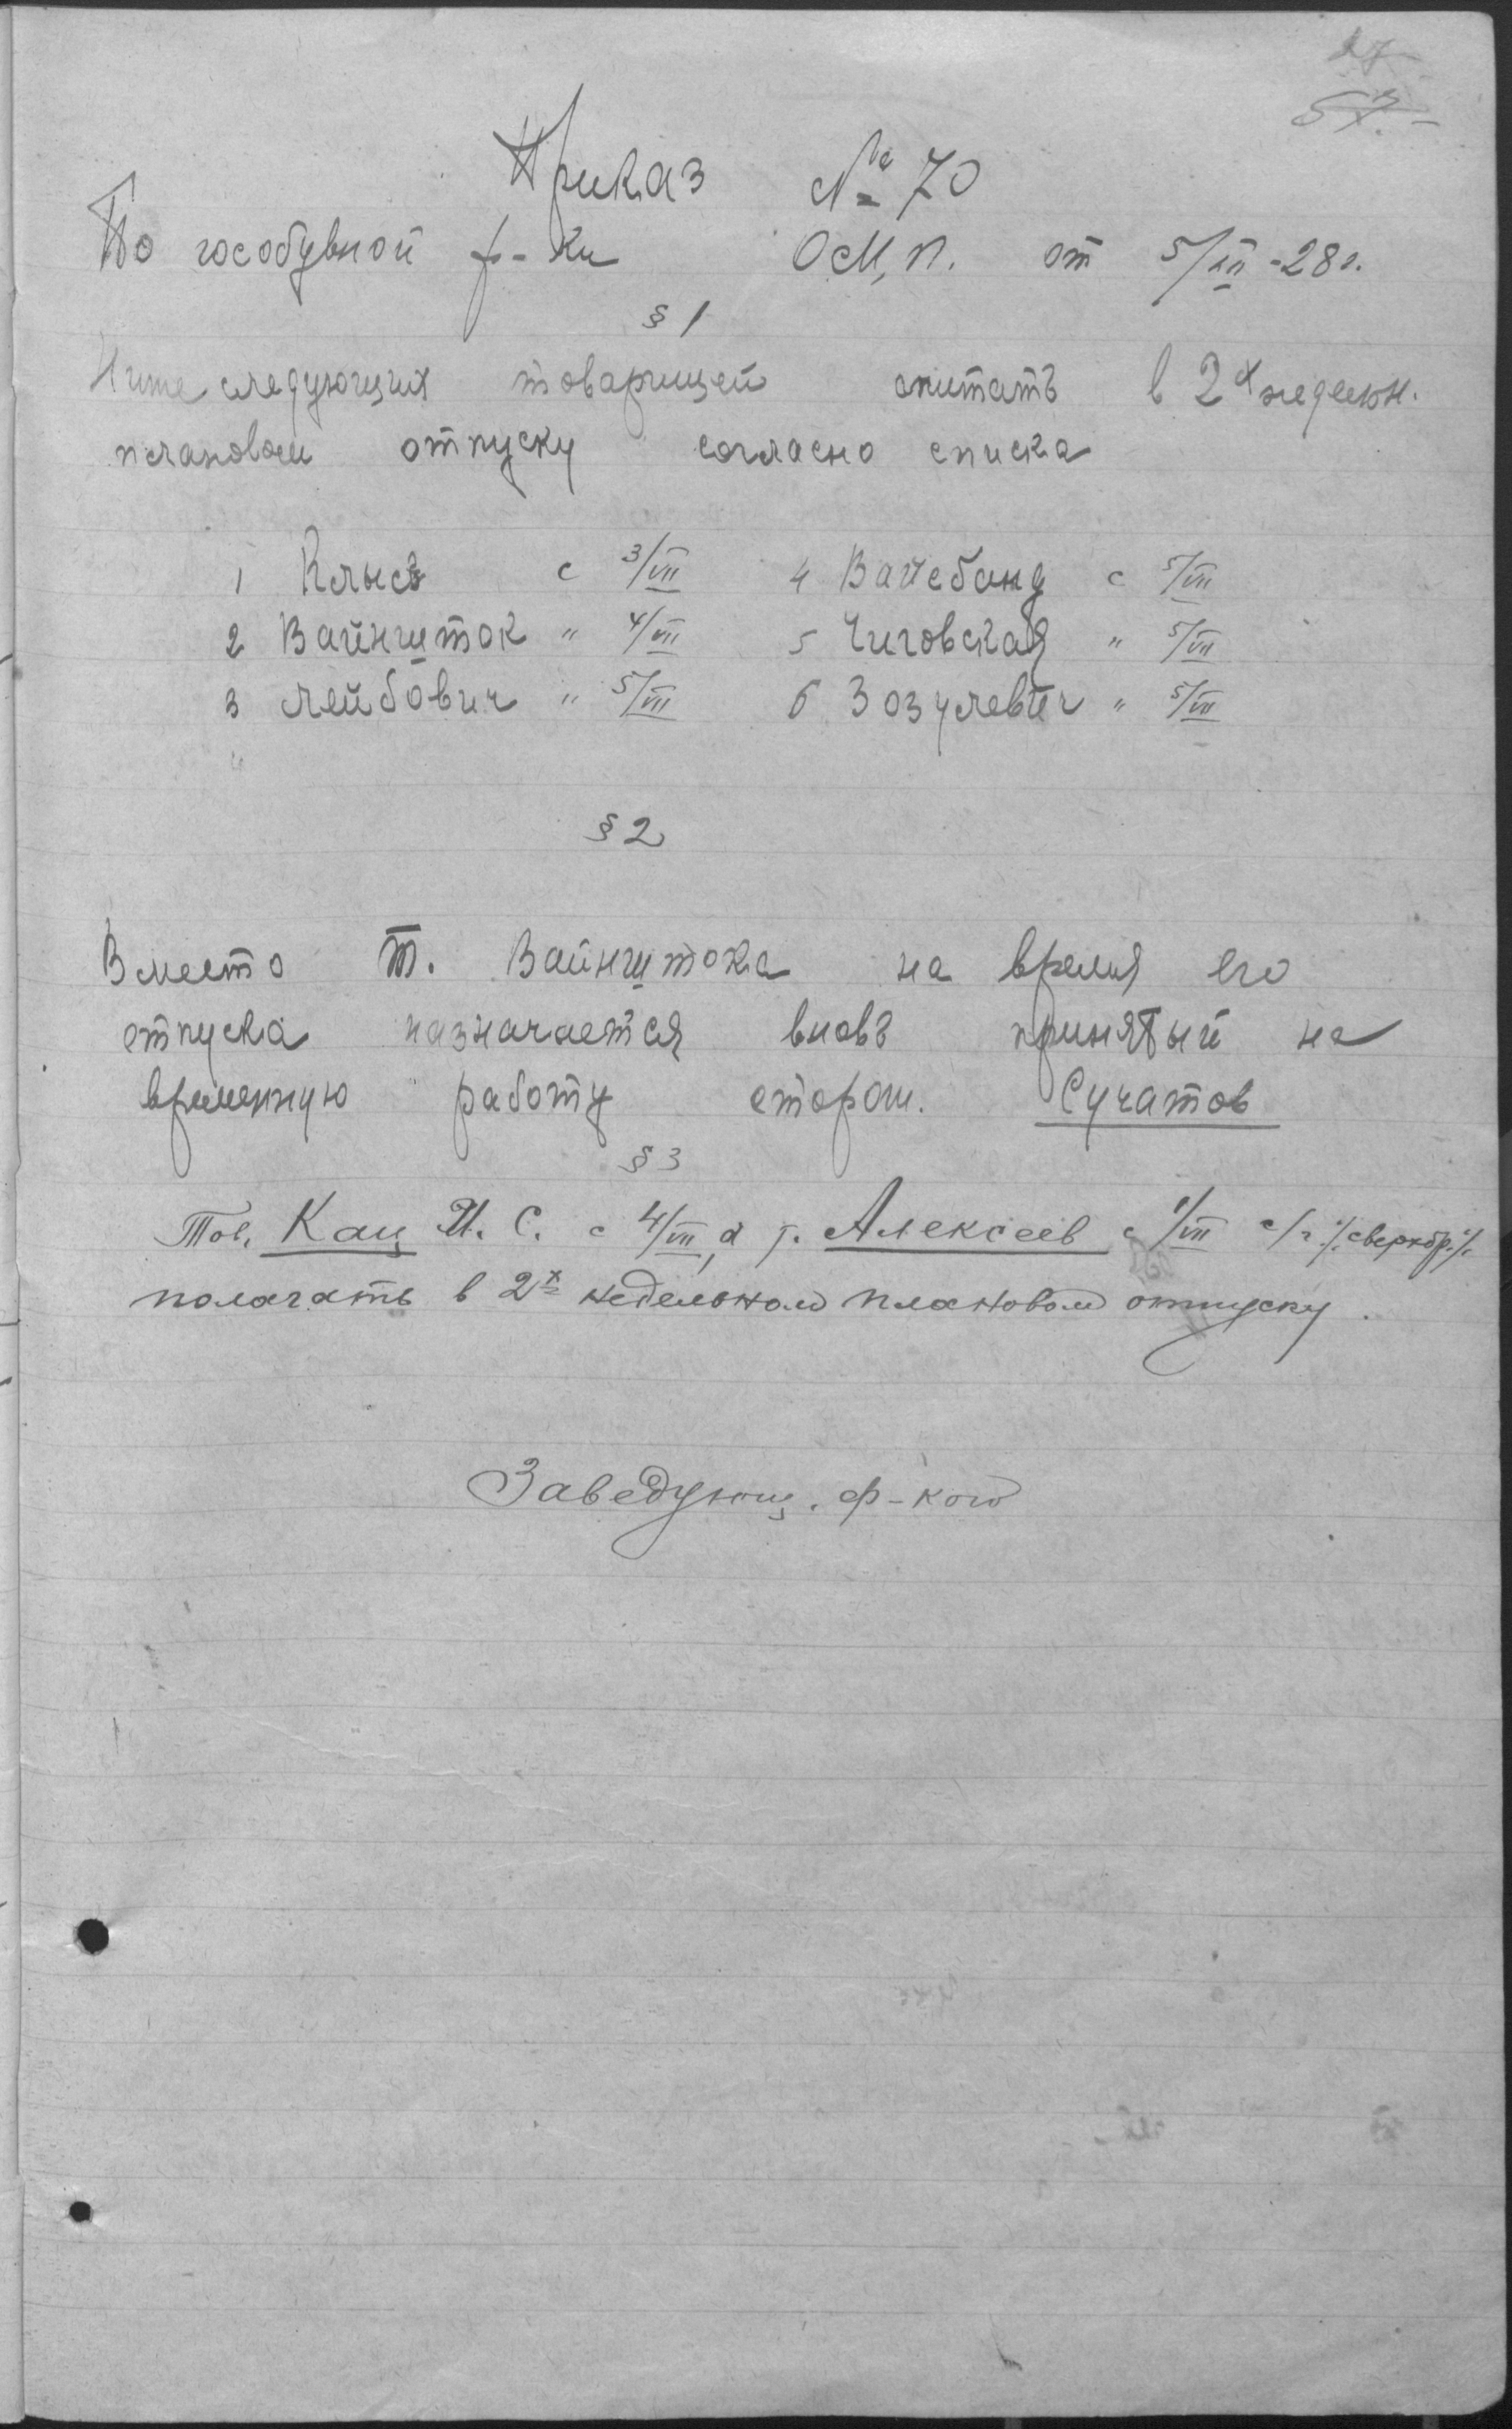 27
57.-
Приказ № 70
По гособувной ф-ки О.М.П. от 5/VII-28 г.
§ 1
Ниже следующих товарищей считать в 2х недельн.
плановом отпуску согласно списка
1 Клысъ с 3/VII 4 Вайсбанд с 5/VII
2 Вайншток " 4/VII 5 Чиговская " 5/VII
3 Лейбович " 5/VII 6 Зозулевич " 5/VII
"
§ 2
Вместо т. Вайнштока на время его
отпуска назначается вновь принятый на
временную работу сторож. Сучатов
§ 3
Тов. Кац И. С. с 4/VII, а т. Алексеев с 1/VII с/г
полагать в 2х недельном плановом отпуску.
Заведующ. ф-кою